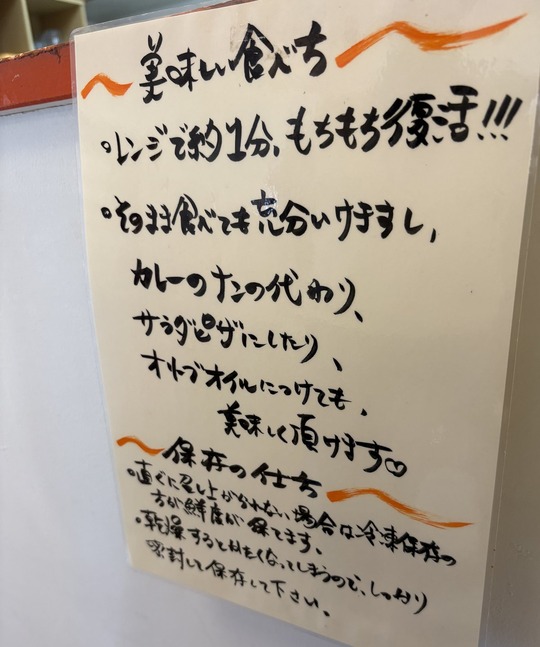 美味しい食べ方
・レンジで約1分、もちもち復活!!!
・そのまま食べても充分いけますし、
カレーのナンの代わり、
サラダピザにしたり、
オリーブオイルにつけても、
美味しく頂けます♡
保存の仕方
・直ぐに召し上がられない場合は冷凍保存の
方が鮮度が保てます。
・乾燥するとかたくなってしまうので、しっかり
密封して保存して下さい。